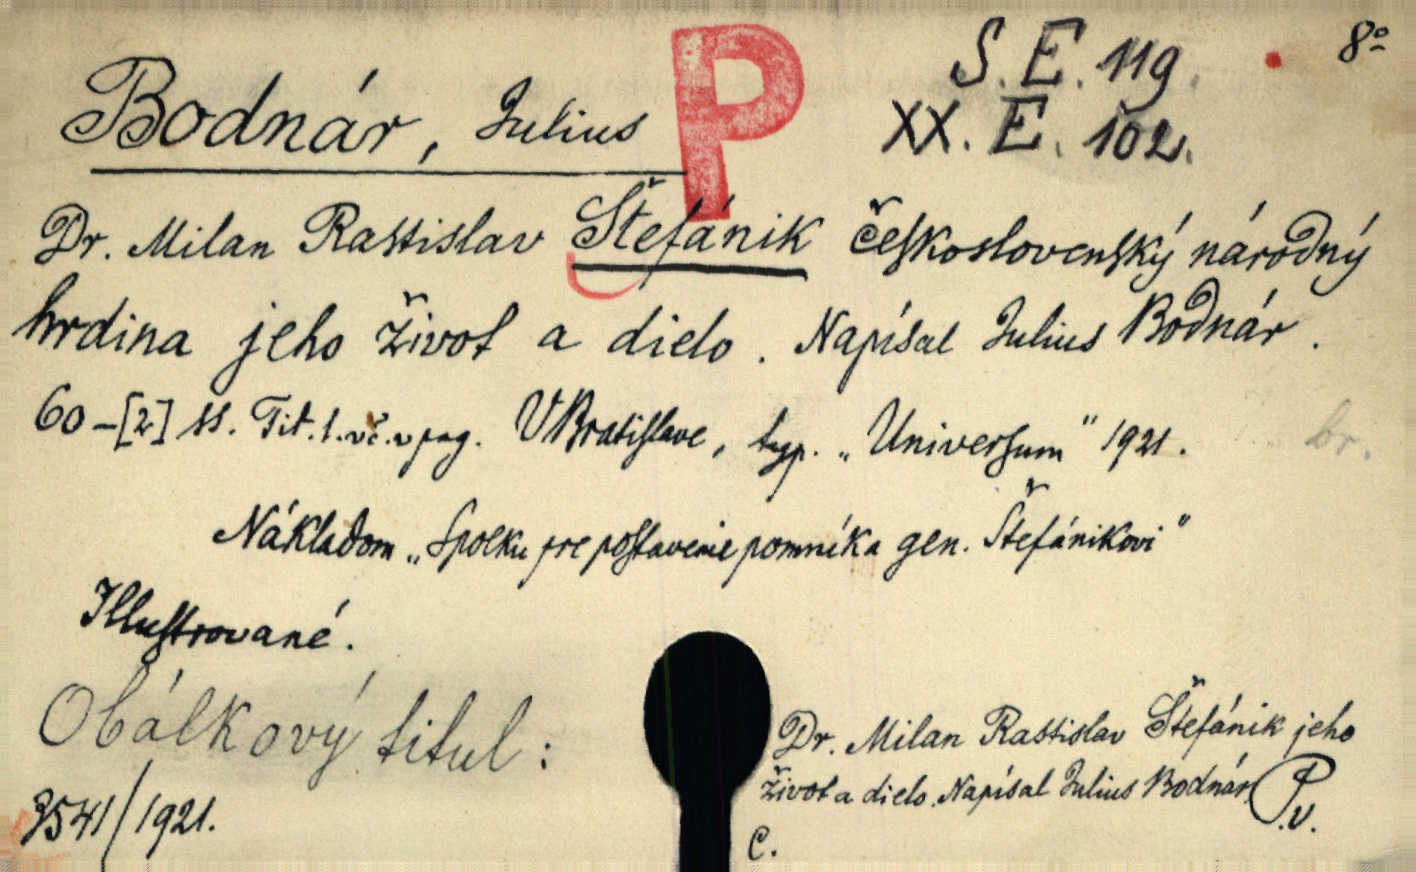 P
S. E. 119.
8º
XX. E. 102.
Bodnár, Julius
Dr. Milan Rastislav Štefánik československý národný
hrdina jeho život a dielo. Napísal Julius Bodnár.
60-[2] ss. Tit. l. vč. v pag. V Bratislave, typ. „Universum" 1921.
br.
Nákladom „Spolku pre postavenie pomníka gen. Štefánikovi"
Illustrované.
Obálkový titul:
Dr. Milan Rastislav Štefánik jeho
život a dielo. Napísal Julius Bodnár.
P.v.
3541/1921.
C.